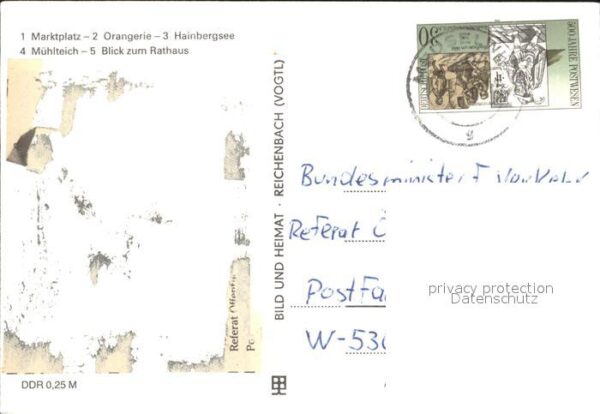 1 Marktplatz – 2 Orangerie – 3 Hainbergsee
4 Mühlteich – 5 Blick zum Rathaus
BILD UND HEIMAT · REICHENBACH (VOGTL)
500 JAHRE POSTWESEN
Bundesminister F
Referat
PostFa
W-530
privacy protection
Datenschutz
Referat Öffentli
Po
DDR 0,25 M